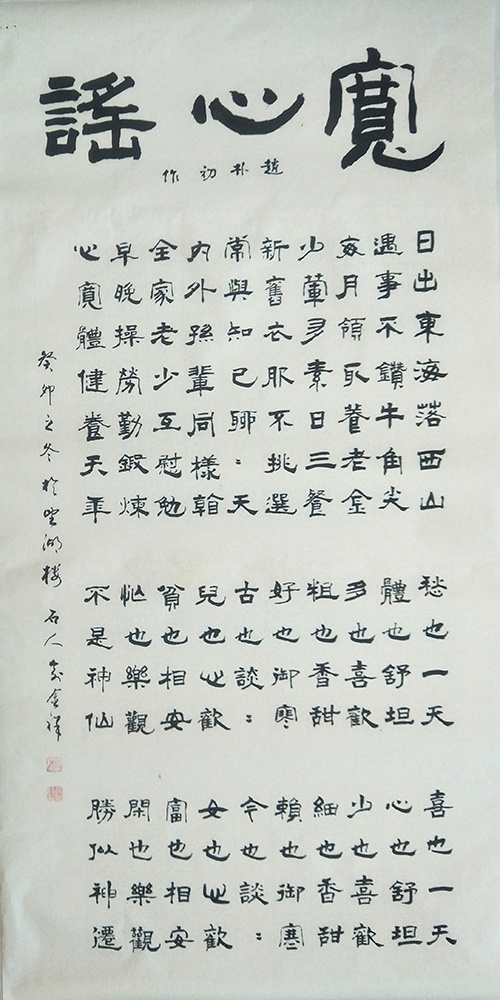 寬心謠
趙朴初作
日出東海落西山 愁也一天 喜也一天
遇事不鑽牛角尖 體也舒坦 心也舒坦
每月領取養老金 多也喜歡 少也喜歡
少葷多素日三餐 粗也香甜 細也香甜
新舊衣服不挑選 好也御寒 賴也御寒
常與知己聊:天 古也談: 今也談:
內外孫輩同樣看 兒也心歡 女也心歡
全家老少互慰勉 貧也相安 富也相安
早晚操勞勤鍛煉 忙也樂觀 閑也樂觀
心寬體健養天年 不是神仙 勝似神遷
癸卯之冬於望湖樓 石人